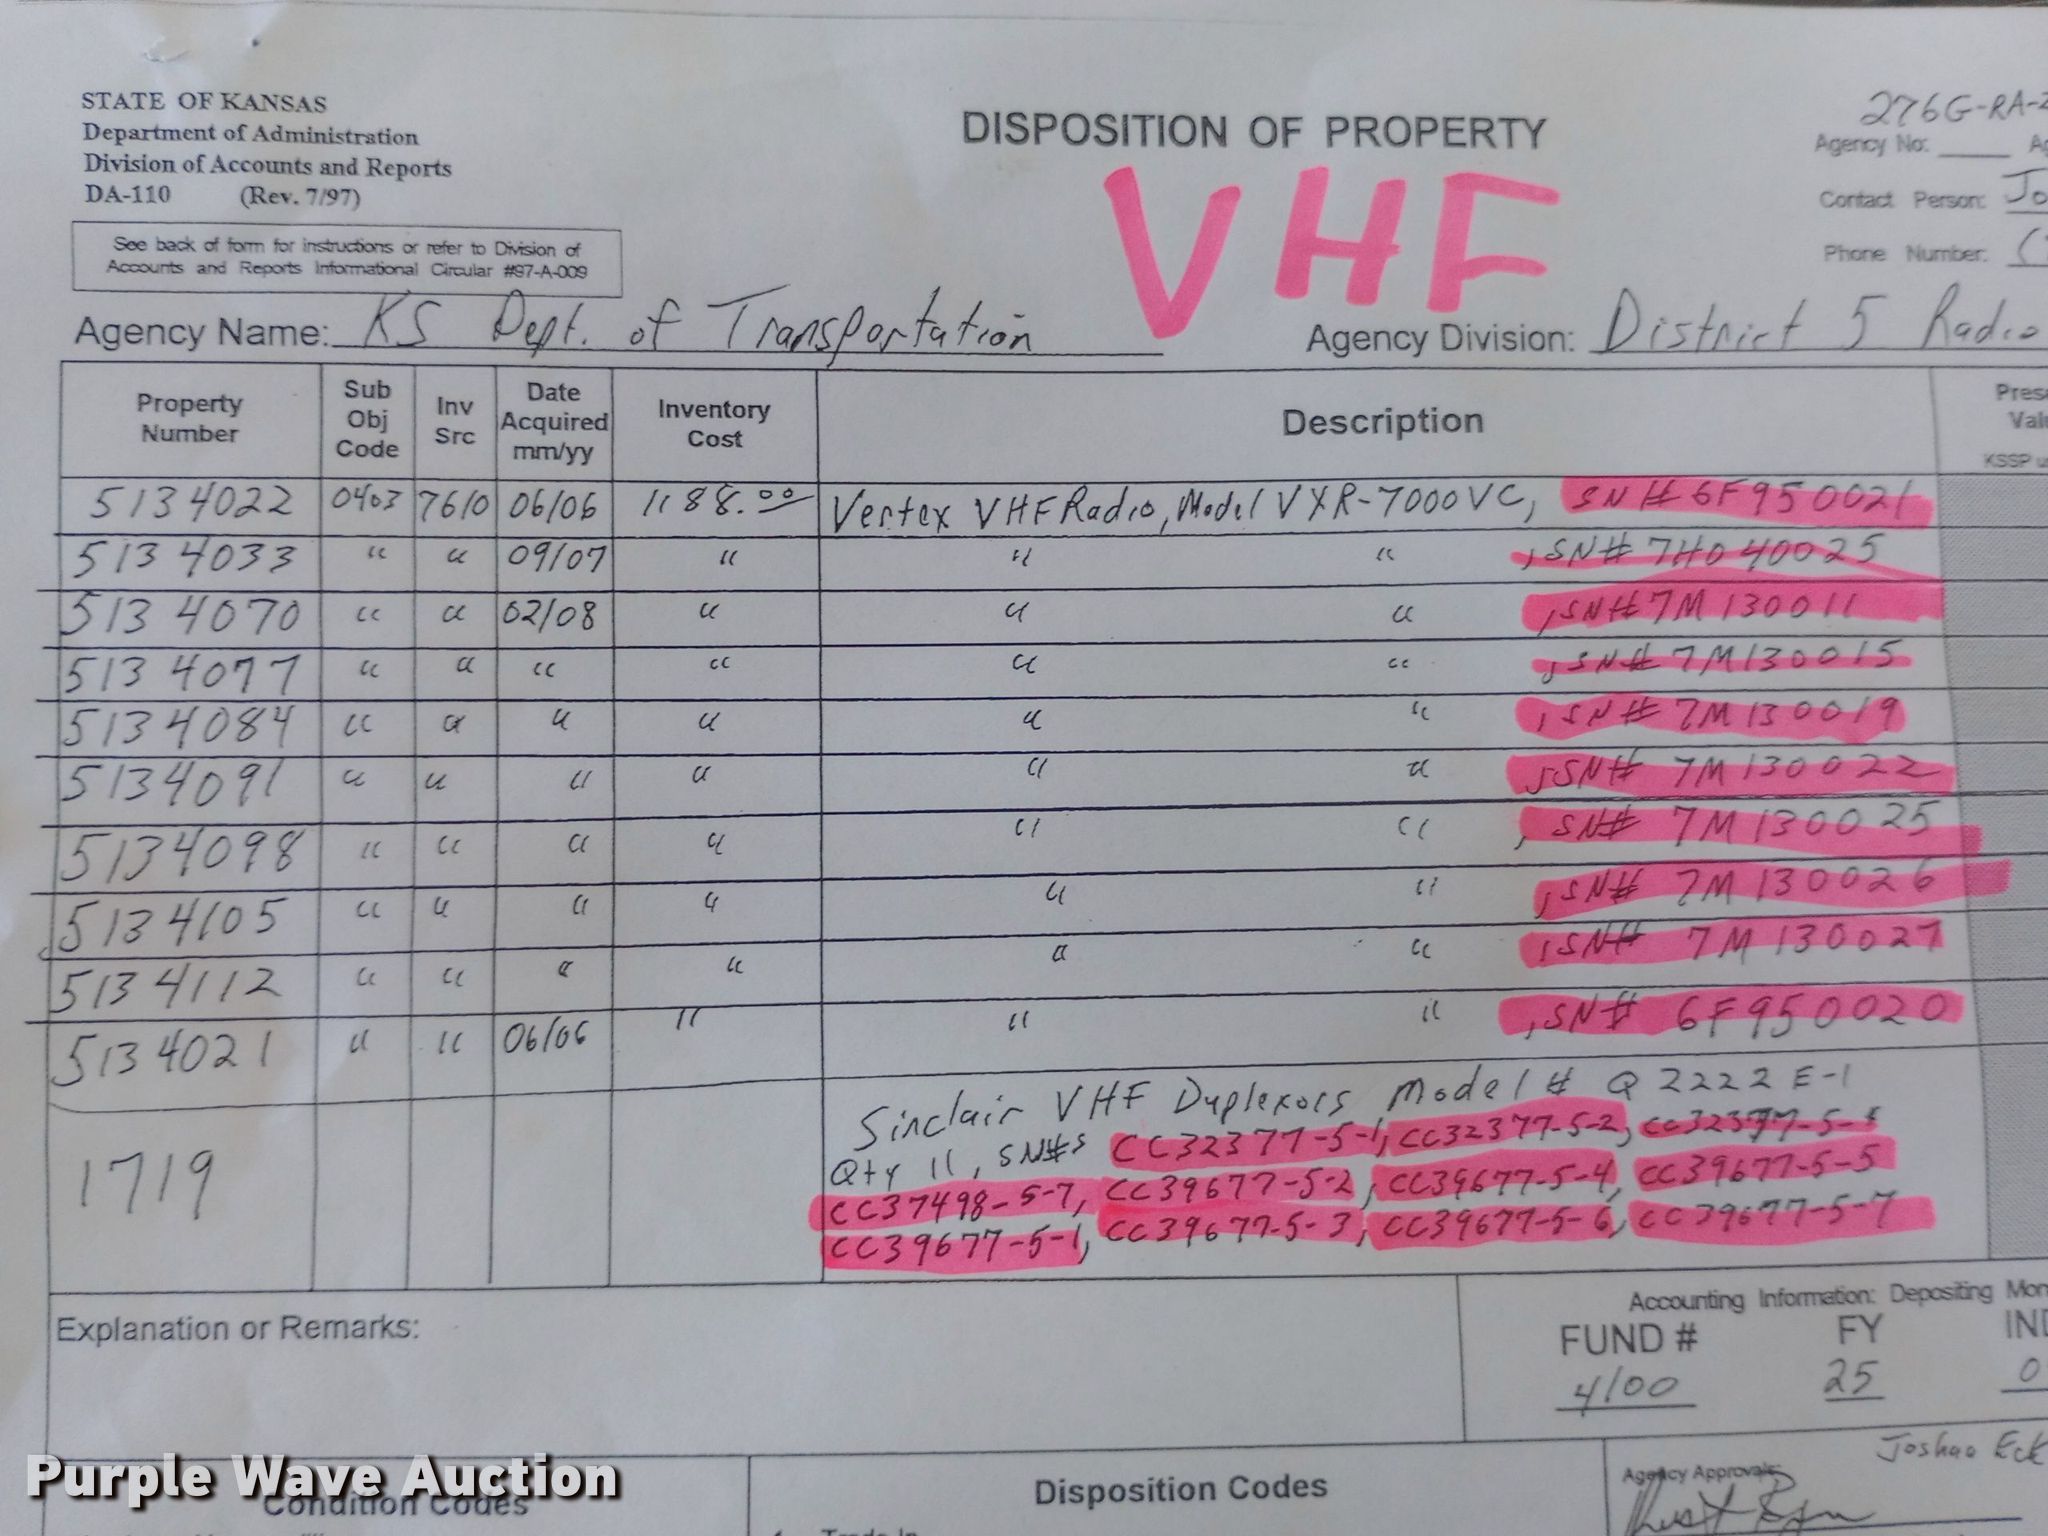 STATE OF KANSAS
Department of Administration
Division of Accounts and Reports
DA-110 (Rev. 7/97)
See back of form for instructions or refer to Division of
Accounts and Reports Informational Circular #97-A-009
DISPOSITION OF PROPERTY
VHF
276G-RA-
Agency No:
Contact Person: Jo
Phone Number: (
Agency Name: KS Dept. of Transportation
Agency Division: District 5 Radio
Property Number Sub Obj Code Inv Src Date Acquired mm/yy Inventory Cost Description Prese Valu KSSP u
5134022 0403 7610 06/06 1188.00 Vertex VHF Radio, Model VXR-7000VC, SN# 6F950021
5134033 " " 09/07 " " " , SN# 7H040025
5134070 " " 02/08 " " " , SN# 7M130011
5134077 " " " " " " , SN# 7M130015
5134084 " " " " " " , SN# 7M130019
5134091 " " " " " " , SN# 7M130022
5134098 " " " " " " , SN# 7M130025
5134105 " " " " " " , SN# 7M130026
5134112 " " " " " " , SN# 7M130027
5134021 " " 06/06 " " " , SN# 6F950020
1719
Sinclair VHF Duplexors Model # Q2222E-1
Qty 11, SN#s CC32377-5-1, CC32377-5-2,
CC37498-5-7, CC39677-5-2, CC39677-5-4, CC39677-5-5
CC39677-5-1, CC39677-5-3, CC39677-5-6, CC39677-5-7
Explanation or Remarks:
Accounting Information: Depositing Mon
FUND # FY IND
4100 25 0
Purple Wave Auction
Condition Codes
Disposition Codes
Trade In
Joshua Eck
Agency Approvals: